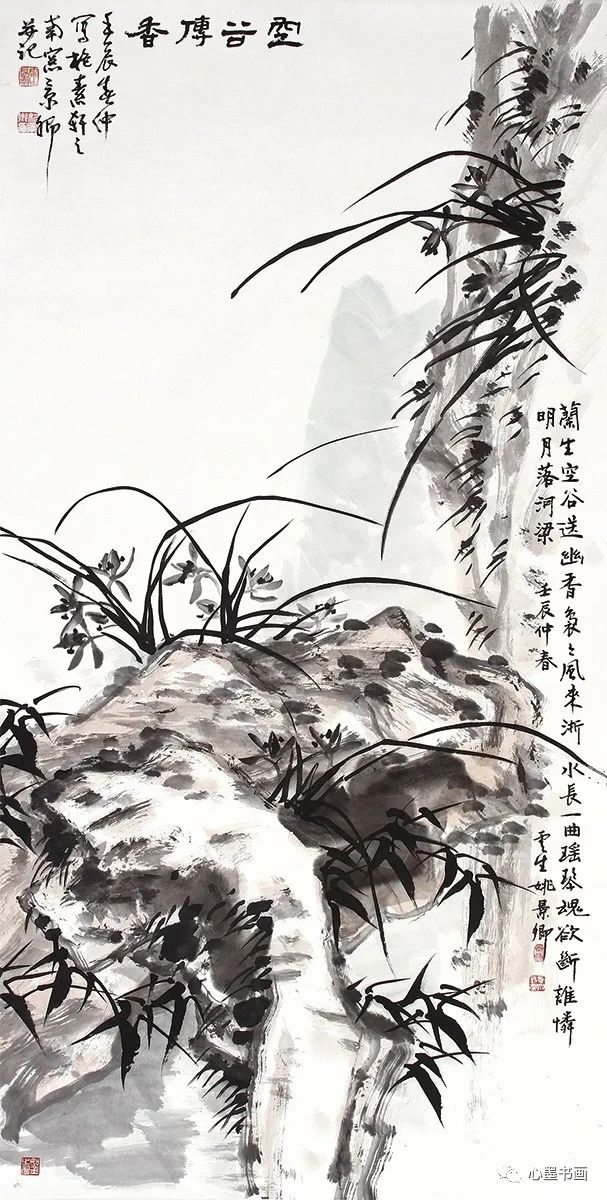 空谷傳香
壬辰春仲
寫素軒之
南窯景卿
并记
蘭生空谷送幽香裊々風來浙水長一曲瑶琴魂欲斷誰憐
明月落河梁 壬辰仲春
雲生姚景卿
心墨书画